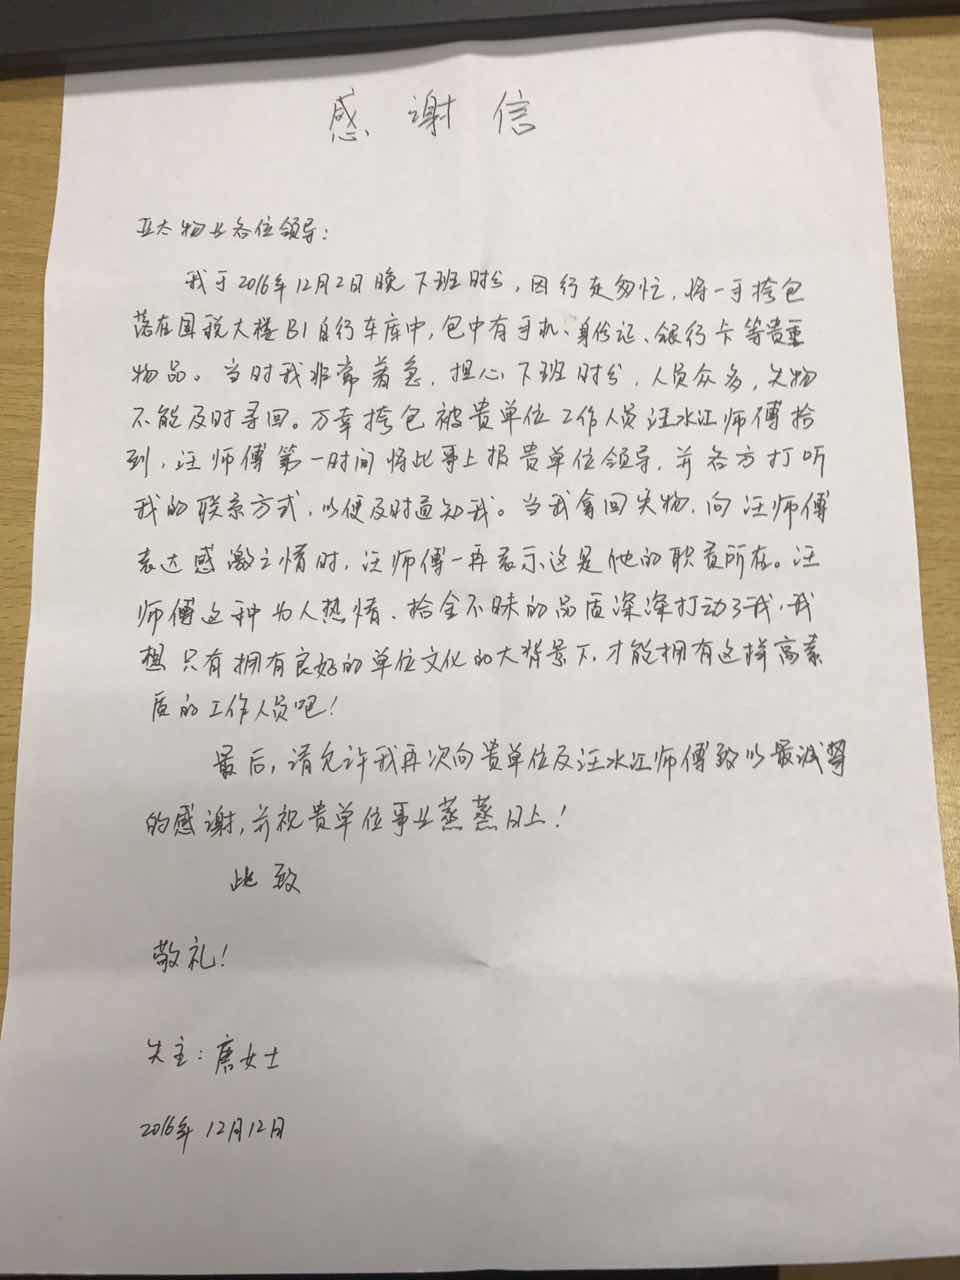 感谢信
亚太物业各位领导:
我于2016年12月2日晚下班时分,因行走匆忙,将一手挎包
落在国税大楼B1自行车库中,包中有手机、身份证、银行卡等贵重
物品。当时我非常着急,担心下班时分,人员众多,失物
不能及时寻回。万幸挎包被贵单位工作人员汪水江师傅拾
到,汪师傅第一时间将此事上报贵单位领导,并各方打听
我的联系方式,以便及时通知我。当我拿回失物,向汪师傅
表达感激之情时,汪师傅一再表示这是他的职责所在。汪
师傅这种为人热情、拾金不昧的品质深深打动了我,我
想只有拥有良好的单位文化的大背景下,才能拥有这样高素
质的工作人员吧!
最后,请允许我再次向贵单位及汪水江师傅致以最诚挚
的感谢,并祝贵单位事业蒸蒸日上!
此致
敬礼!
失主:唐女士
2016年12月12日